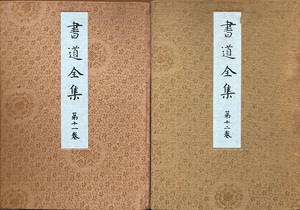 書道全集
第十一卷
書道全集
第十二卷